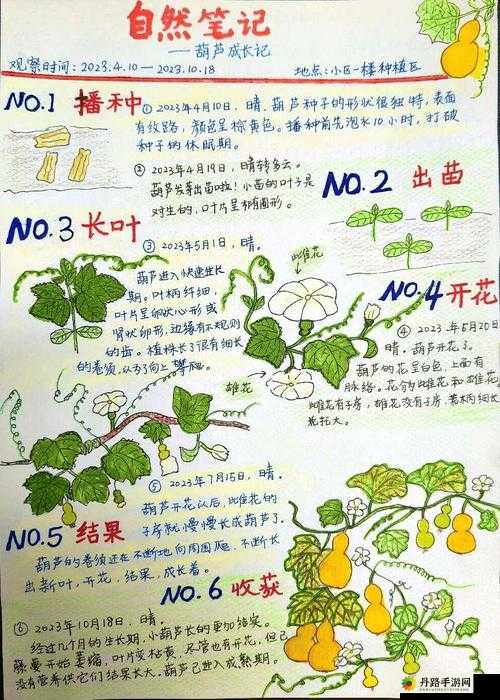 自然笔记
——葫芦成长记
观察时间：2023.4.10—2023.10.18
地点：小区一楼种植区
NO.1 播种
① 2023年4月10日，晴。葫芦种子的形状很独特，表面
有纹路，颜色呈棕黄色。播种前先泡水10小时，打破
种子的休眠期。
② 2023年4月19日，晴转多云。
葫芦发芽出苗啦！小苗的叶子是
对生的，叶片呈卵圆形。
NO.2 出苗
NO.3 长叶
③ 2023年5月1日，晴。
葫芦进入快速生长
期。叶柄纤细，
叶片呈卵状心形或
肾状卵形，边缘有不规则
的齿。植株长了很有细长
的卷须，从而向上攀爬。
雌花
雄花
NO.4 开花
④ 2023年5月20日
晴。葫芦开花了。
葫芦的花呈白色，上面有
脉络。花分为雌花和雄花
雌花有子房，雄花没有子房，花柄细长
⑤ 2023年7月15日，晴。
葫芦开花以后，雌花的
子房就慢慢长成葫芦了。
NO.5 结果
葫芦的卷须还在不断地向周围爬，不断长
出新叶，开花，结果，成长着。
NO.6 收获
⑥ 2023年10月18日，晴。
经过几个月的生长期，小葫芦长的更加结实。
藤蔓开始萎缩，叶片变枯黄，尽管也有开花，但已
没有营养供它们结果长大。葫芦已进入成熟期。
丹路手游网